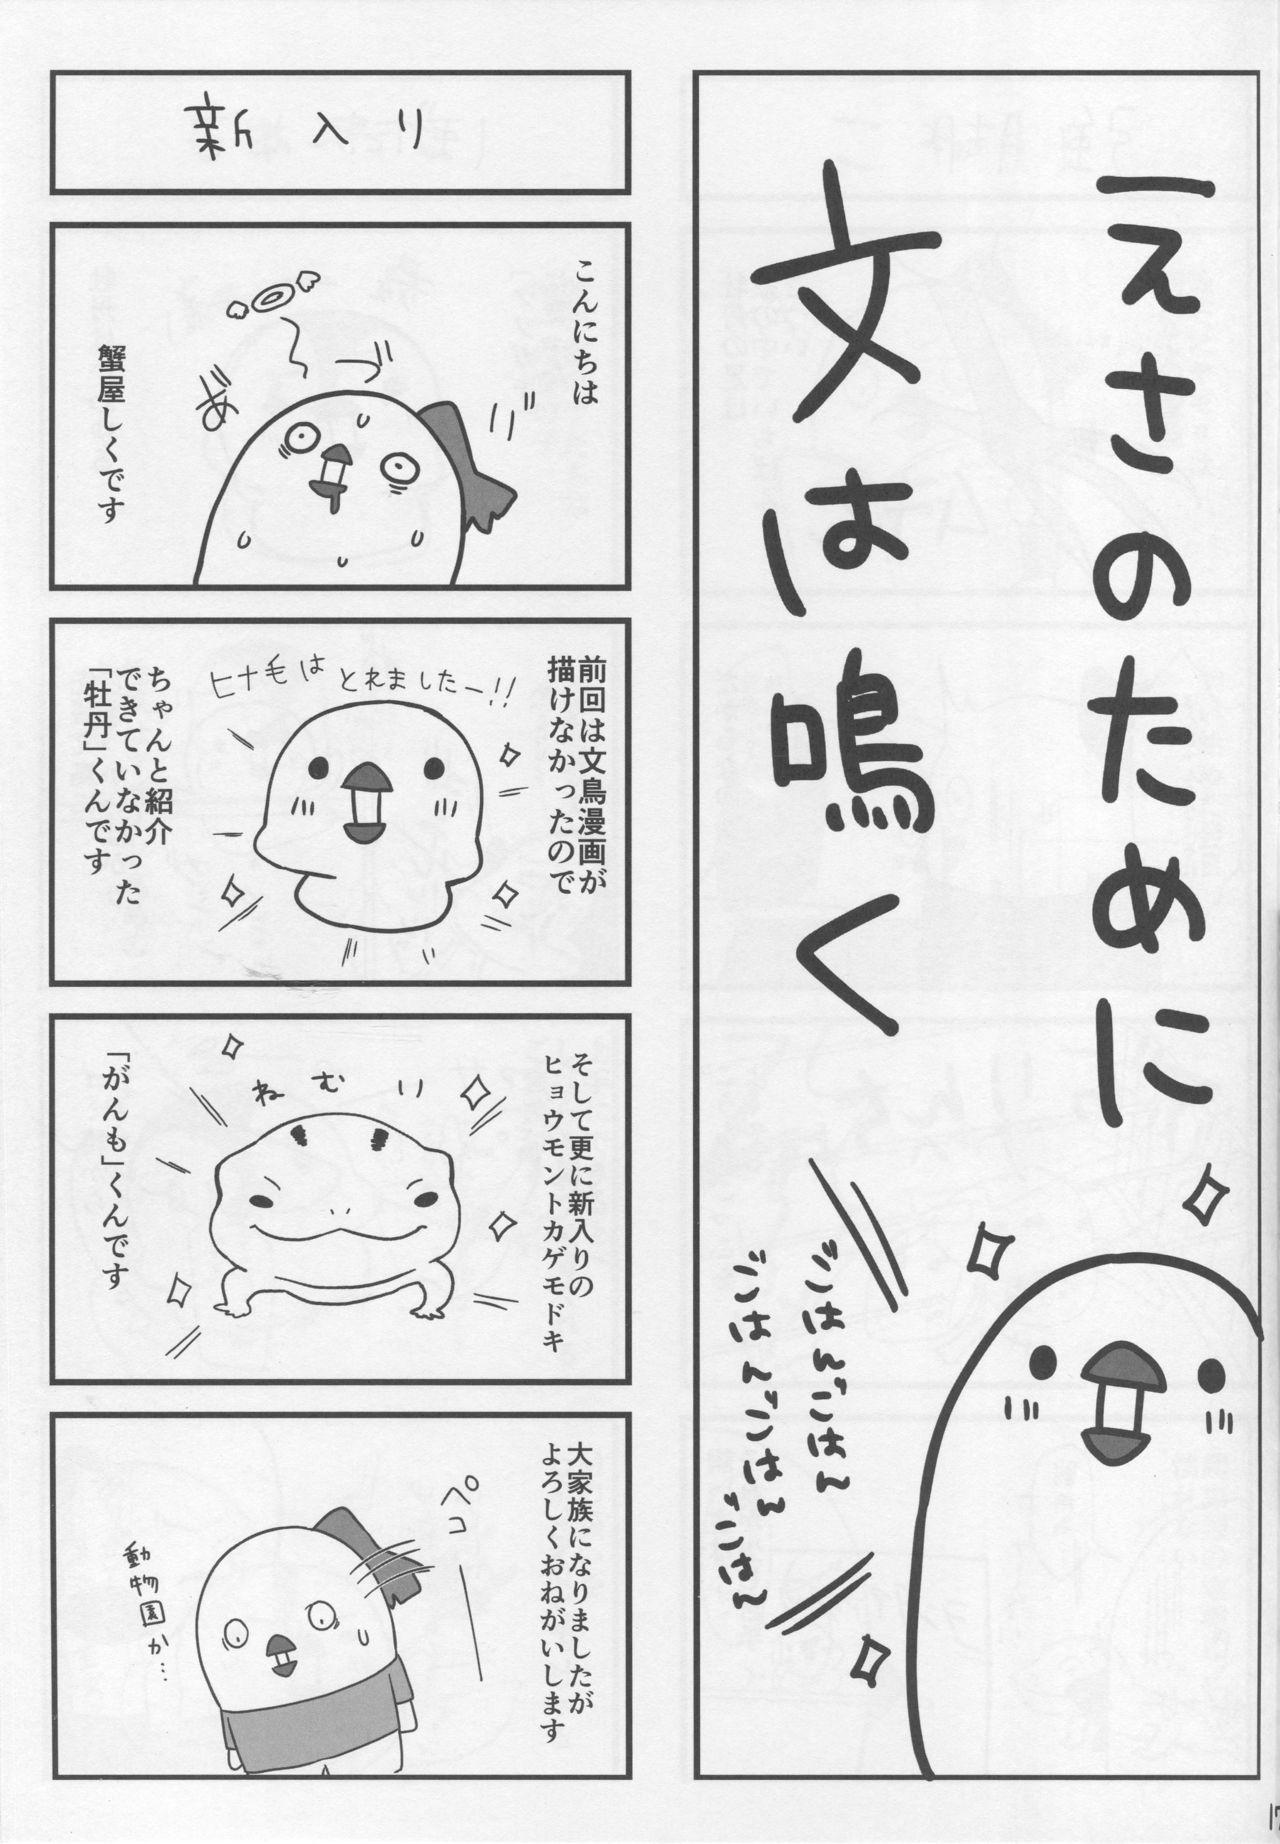 えさのために
文は鳴く
ごはんごはん
ごはんごはん
ごはん
新入り
こんにちは
蟹屋しくです
前回は文鳥漫画が
描けなかったので
ヒナ毛はとれましたー!!
ちゃんと紹介
できていなかった
「牡丹」くんです
そして更に新入りの
ヒョウモントカゲモドキ
ねむり
「がんも」くんです
大家族になりましたが
よろしくおねがいします
ペコ
動物園か…